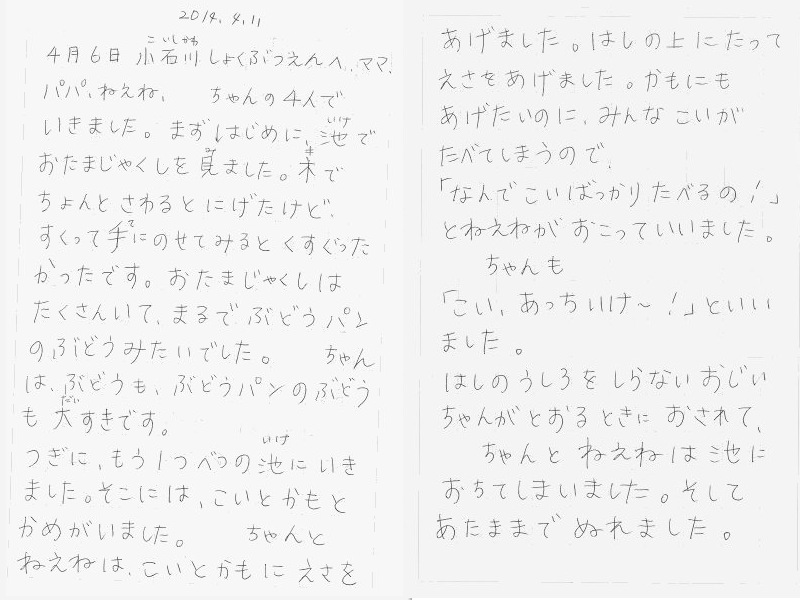 2014.4.11
4月6日 小石川しょくぶつえんへ、ママ、
こいしかわ
パパ、ねえね、 ちゃんの4人で
いきました。まずはじめに、池で
いけ
おたまじゃくしを見ました。木で
み
き
ちょんとさわるとにげたけど、
すくって手にのせてみるとくすぐった
て
かったです。おたまじゃくしは
たくさんいて、まるでぶどうパン
のぶどうみたいでした。 ちゃん
は、ぶどうも、ぶどうパンのぶどう
も大すきです。
だい
つぎに、もう1つべつの池にいき
いけ
ました。そこには、こいとかもと
かめがいました。 ちゃんと
ねえねは、こいとかもにえさを
あげました。はしの上にたって
えさをあげました。かもにも
あげたいのに、みんなこいが
たべてしまうので、
「なんでこいばっかりたべるの!」
とねえねがおこっていいました。
ちゃんも
「こい、あっちいけ〜!」といい
ました。
はしのうしろをしらないおじい
ちゃんがとおるときにおされて、
ちゃんとねえねは池に
おちてしまいました。そして
あたままでぬれました。